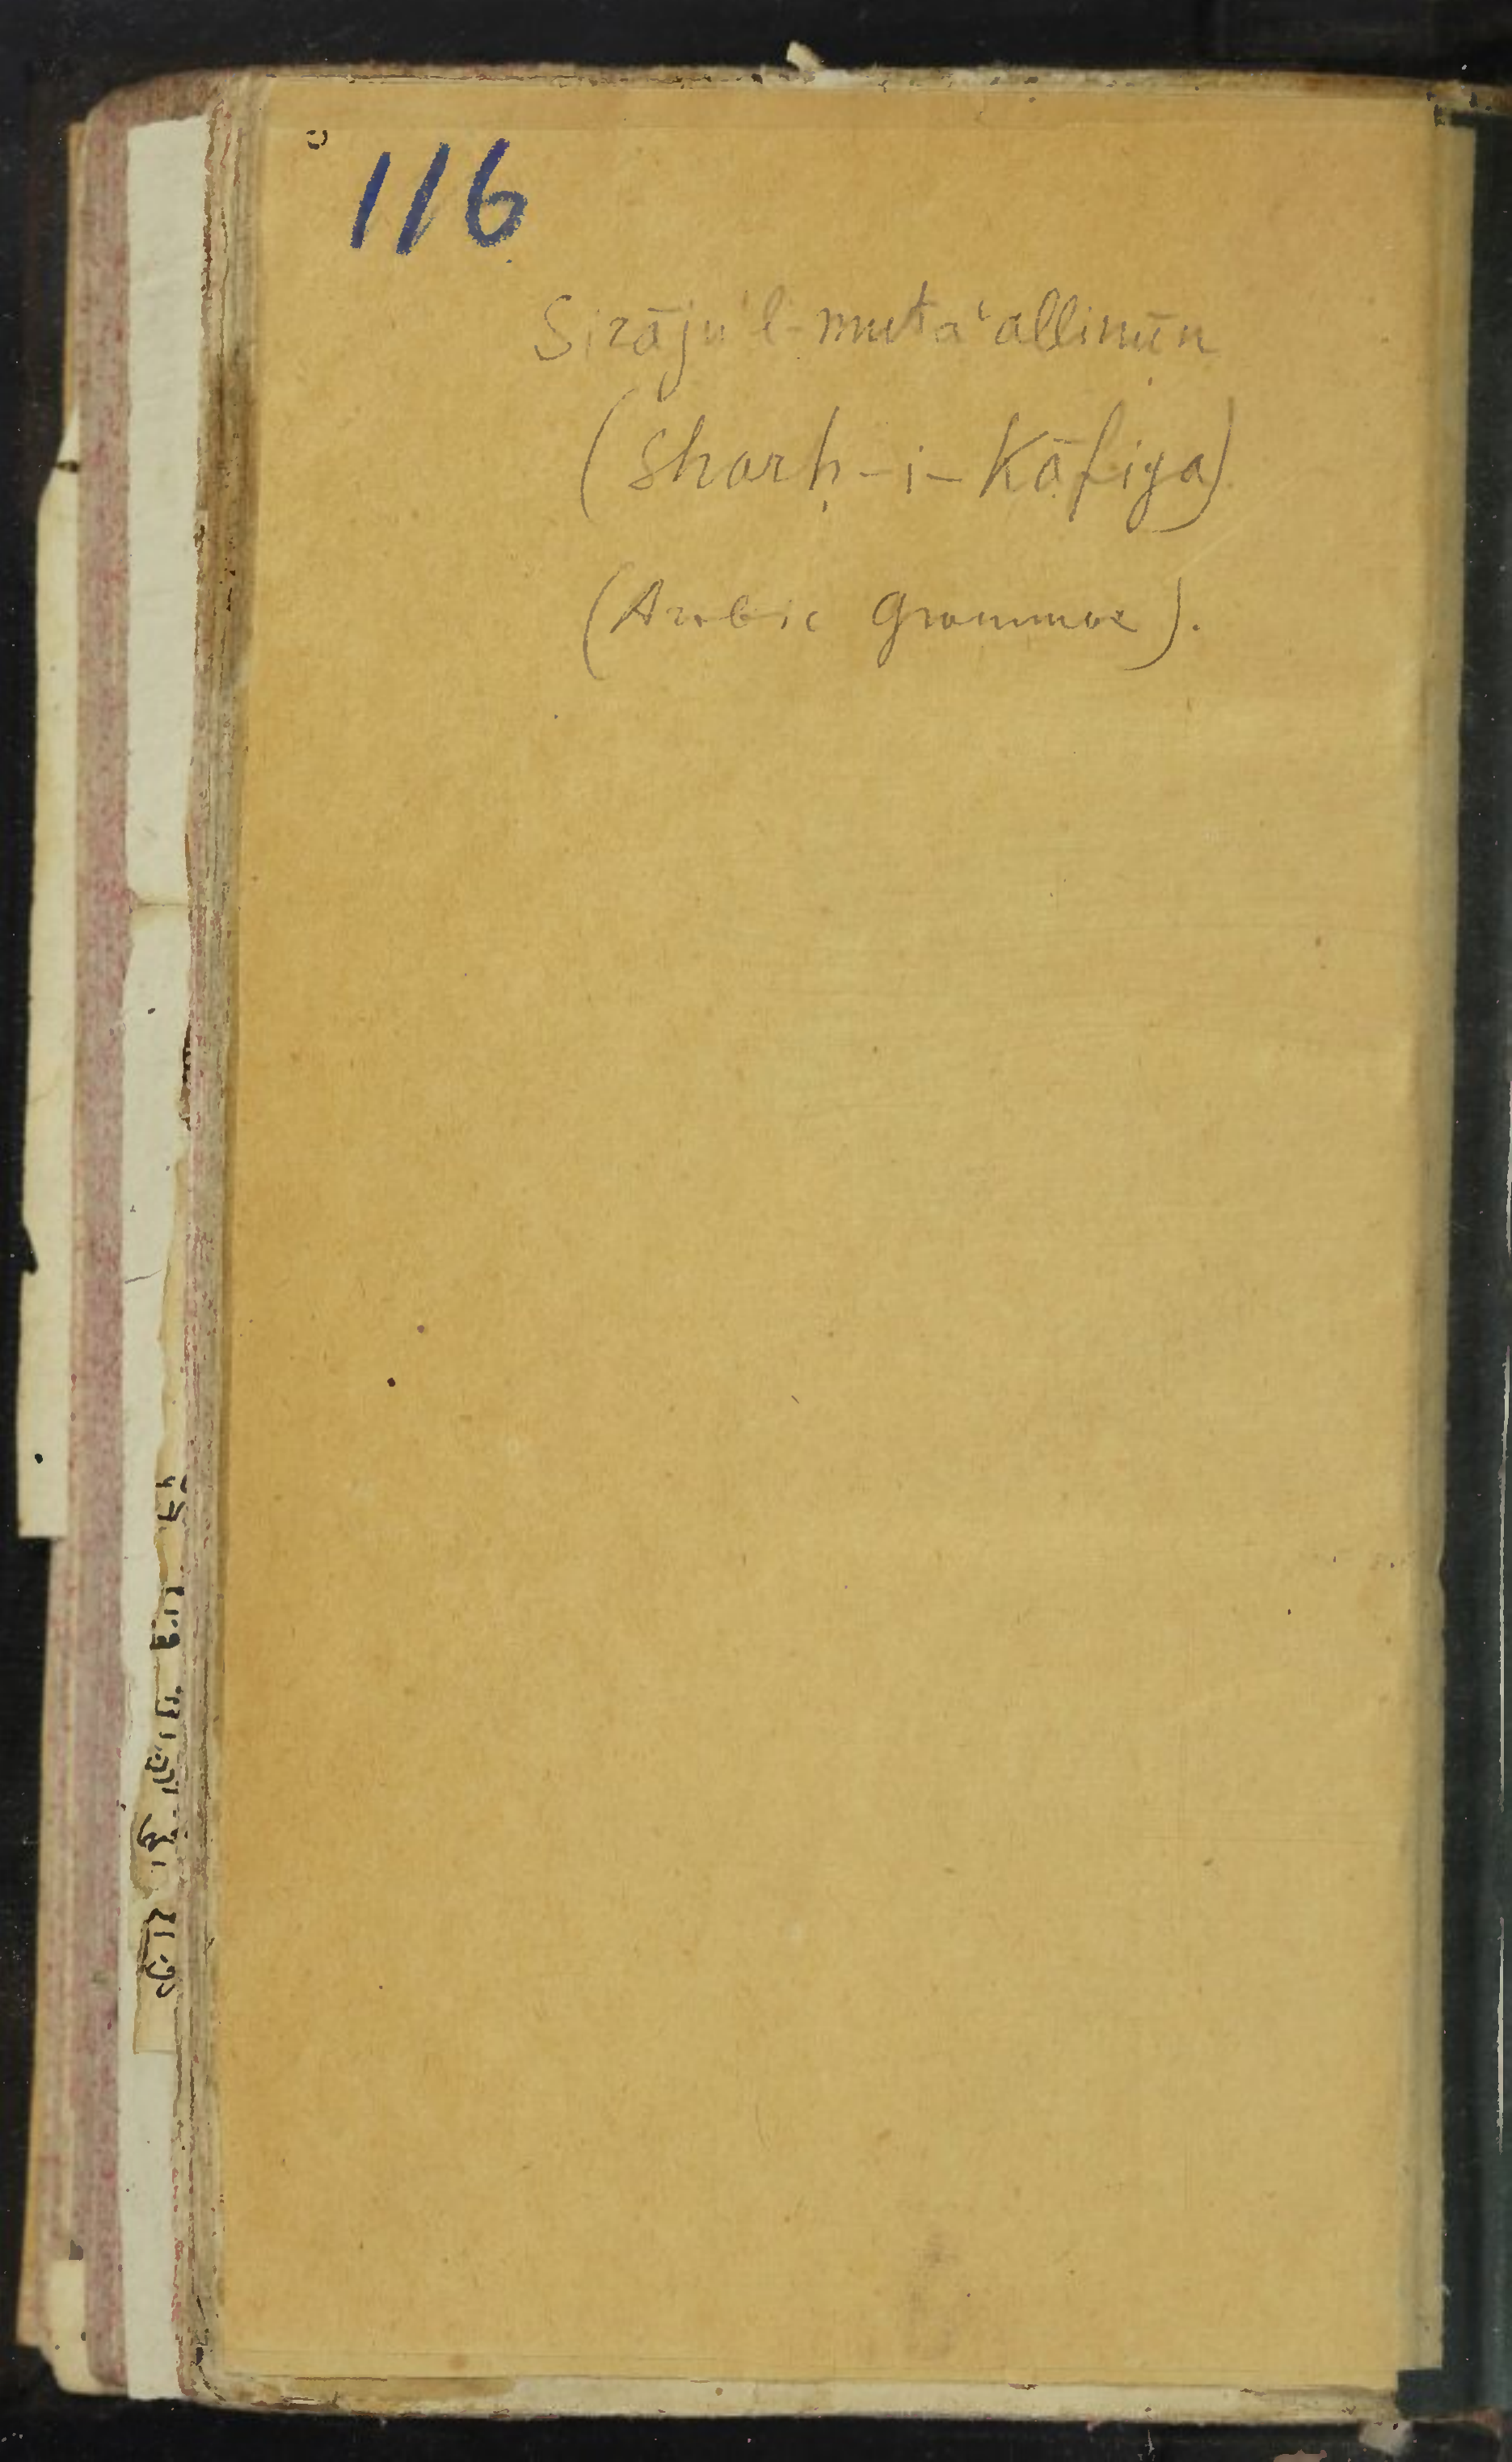 116
Sirāju'l-muta‘allimīn
(Sharḥ-i-Kāfiya)
(Arabic Grammar).